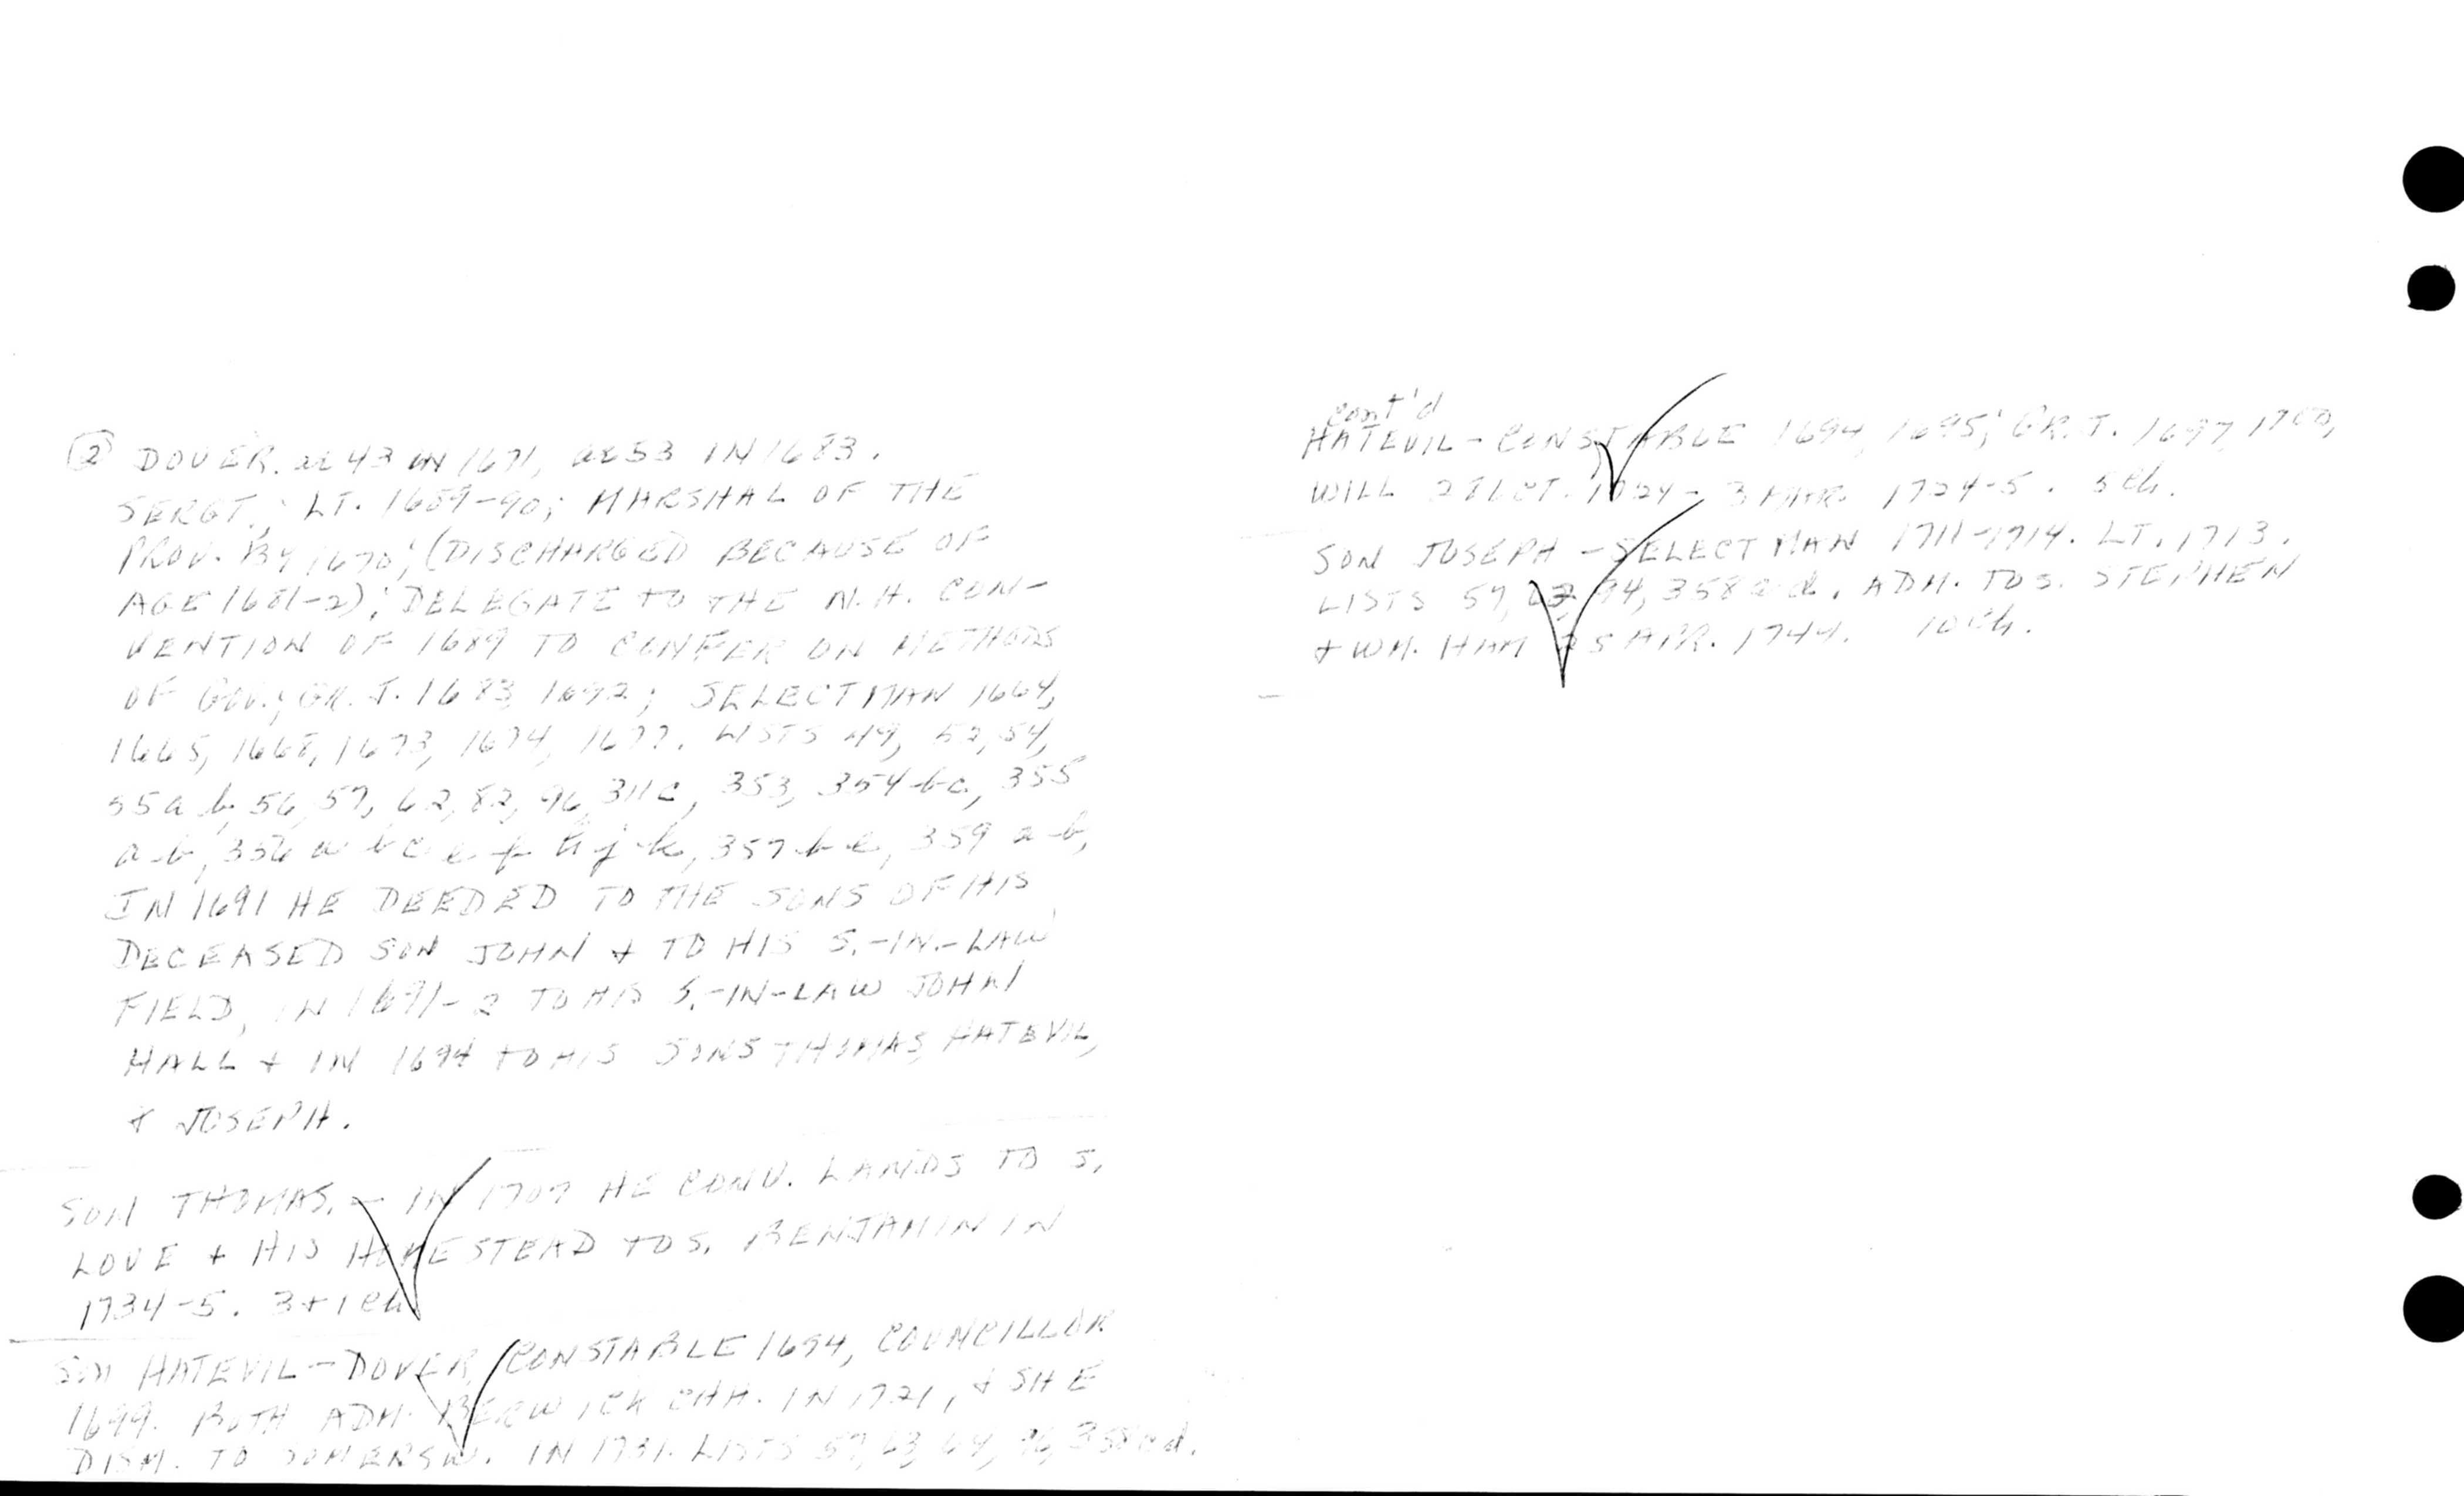 ② DOVER. ae 43 IN 1671, ae 53 IN 1683.
SERGT., LT. 1689-90; MARSHAL OF THE
PROV. BY 1670; (DISCHARGED BECAUSE OF
AGE 1681-2); DELEGATE TO THE N.H. CON-
VENTION OF 1689 TO CONFER ON METHODS
OF GOV.; GR. J. 1683, 1692; SELECTMAN 1664,
1665, 1668, 1673, 1674, 1677. LISTS 49, 52, 54,
55a b, 56, 57, 62, 82, 96, 311c, 353, 354 b c, 355
a-b, 356 a b c e f h j k, 357 b-e, 359 a-b,
IN 1691 HE DEEDED TO THE SONS OF HIS
DECEASED SON JOHN + TO HIS S.-IN-LAW
FIELD, IN 1691-2 TO HIS S.-IN-LAW JOHN
HALL + IN 1694 TO HIS SONS THOMAS, HATEVIL,
+ JOSEPH.
SON THOMAS. - IN 1707 HE CONV. LANDS TO S.
LOVE + HIS HOMESTEAD TO S. BENJAMIN IN
1734-5. 3+1 ch
SON HATEVIL - DOVER, CONSTABLE 1694, COUNCILLOR
1699. BOTH ADM. BERWICK CHH. IN 1721, + SHE
DISM. TO SOMERSW. IN 1731. LISTS 57, 63, 64, 96, 358 c d.
cont'd
HATEVIL - CONSTABLE 1694, 1695; GR. J. 1697, 1700,
WILL OCT. 1724 - 3 MAR. 1724-5. 5 ch.
SON JOSEPH - SELECTMAN 1711-1714. LT. 1713.
LISTS 57, 94, 358 d. ADM. TO S. STEPHEN
+ WM. HAM 25 APR. 1744. 10 ch.